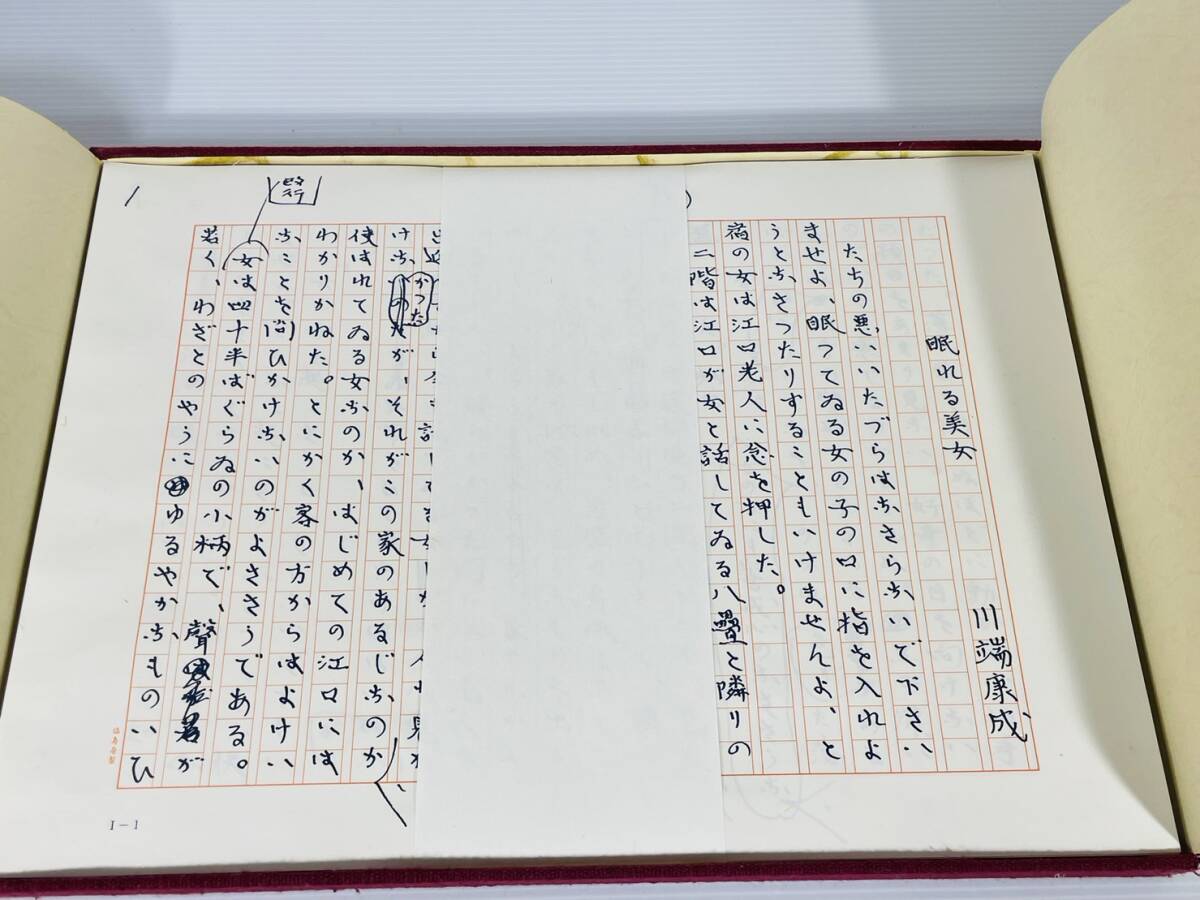 眠れる美女
川端康成
たちの悪いいたづらはなさらないで下さい
ませよ、眠つてゐる女の子の口に指を入れよ
うとなさつたりすることもいけませんよ、と
宿の女は江口老人に念を押した。
二階は江口が女と話してゐる八疊と隣りの
けなかつたが、それがこの家のあるじなのか
使はれてゐる女なのか、はじめての江口には
わかりかねた。とにかく客の方からはよけい
なことを問ひかけないのがよささうである。
改行
女は四十半ばぐらゐの小柄で、聲が
若く、わざとのやうにゆるやかなものいひ
1
I-1